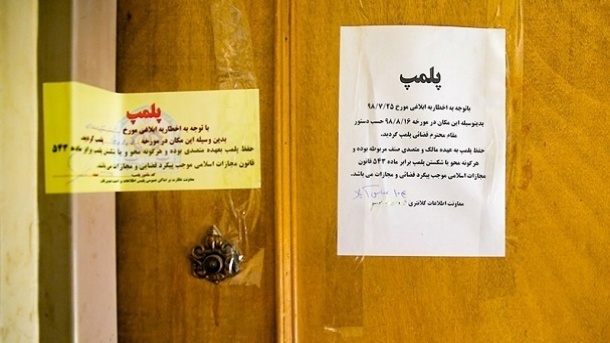 پلمپ
با توجه به اخطاریه ابلاغی مورخ ۹۸/۷/۲۵
بدینوسیله این مکان در مورخه ۹۸/۸/۱۶ حسب دستور
مقام محترم قضائی پلمپ گردید.
حفظ پلمپ به عهده مالک و متصدی صنف مربوطه بوده و
هرگونه محو یا شکستن پلمپ برابر ماده ۵۴۳ قانون
مجازات اسلامی موجب پیگرد قضائی و مجازات می باشد.
معاونت اطلاعات کلانتری
پلمپ
با توجه به اخطاریه ابلاغی مورخ
بدین وسیله این مکان در مورخه پلمپ گردید.
حفظ پلمپ بعهده متصدی بوده و هرگونه محو یا شکستن پلمپ برابر ماده ۵۴۳
قانون مجازات اسلامی موجب پیگرد قضائی و مجازات می باشد.